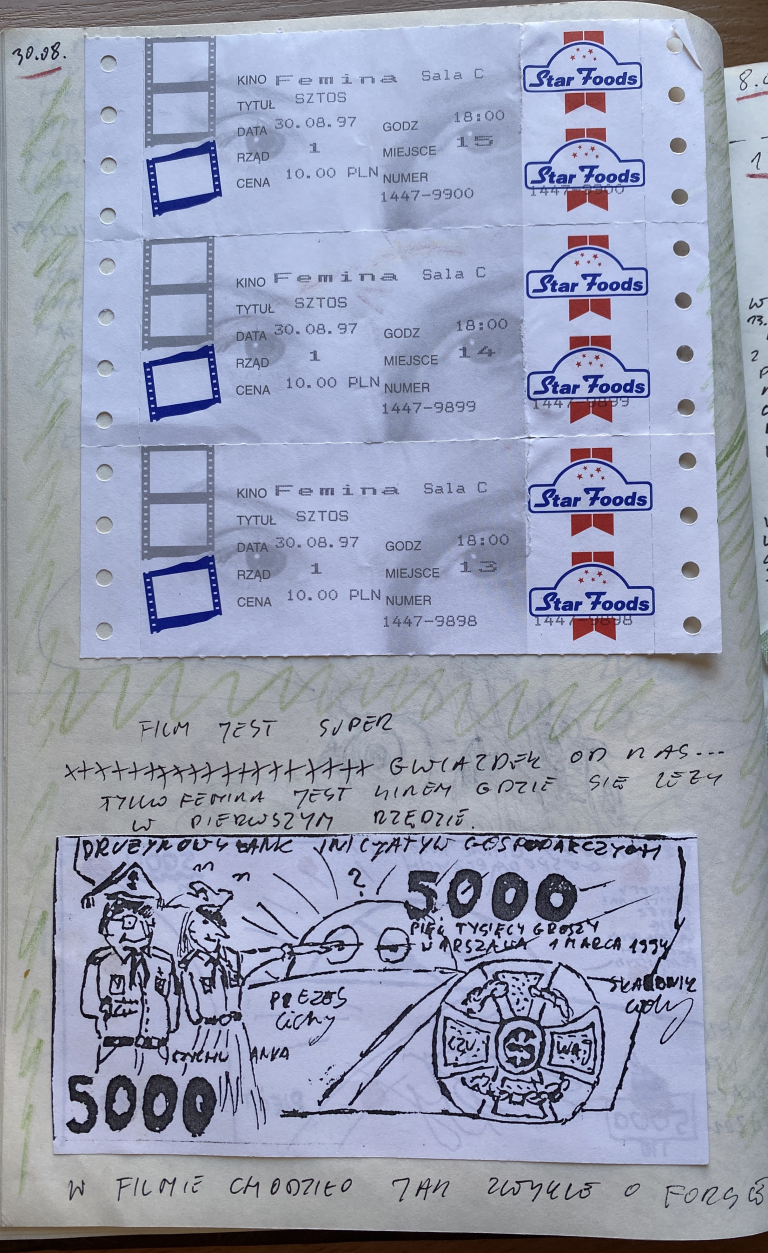 30.08.
KINO Femina Sala C
TYTUŁ SZTOS
DATA 30.08.97 GODZ 18:00
RZĄD 1 MIEJSCE 15
CENA 10.00 PLN NUMER
1447-9900
Star Foods
Star Foods
1447-9900
KINO Femina Sala C
TYTUŁ SZTOS
DATA 30.08.97 GODZ 18:00
RZĄD 1 MIEJSCE 14
CENA 10.00 PLN NUMER
1447-9899
Star Foods
Star Foods
1447-9899
KINO Femina Sala C
TYTUŁ SZTOS
DATA 30.08.97 GODZ 18:00
RZĄD 1 MIEJSCE 13
CENA 10.00 PLN NUMER
1447-9898
Star Foods
Star Foods
1447-9898
FILM JEST SUPER
GWIAZDEK OD NAS...
TYLKO FEMINA JEST KINEM GDZIE SIĘ LEŻY
W PIERWSZYM RZĘDZIE.
DRUŻYNOWY BANK INICJATYW GOSPODARCZYCH
?
5000
PIĘĆ TYSIĘCY GROSZY
WARSZAWA 1 MARCA 1994
PREZES
Cichy
SKARBNIK
CZUWAJ
ZYCHU ANKA
5000
W FILMIE CHODZIŁO JAK ZWYKLE O FORSĘ